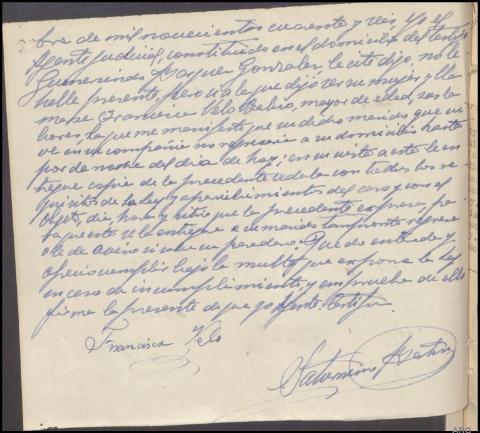 bre de mil novecientos cuarenta y seis, yo el
Agente judicial, constituido en el domicilio del testigo
Gumersindo Marquez Gonzalez le cite dijo, no le
halle presente, pero si a la que dijo ser su mujer y lla
marse Francisca Velo, mayor de edad, sus la
bores, la que me manifesto que su dicho marido que vi
ve en su compañia no regresaria a su domicilio hasta
por de noche del dia de hoy; en su vista a esta le en
tregue copia de la precedente cedula con todos los re
quisitos de la Ley y apercibimientos del caso y con el
objeto, dia, hora y sitio que la precedente expresa, pa
ra que esta se la entregue a su marido tan pronto regrese
o le de aviso si sabe su paradero. Quedo enterada y
ofrecio cumplir bajo la multa que expone la Ley
en caso de incumplimiento, y en prueba de ello
firma la presente de que yo Agente. Certifico.
Francisca Velo
Saturnino